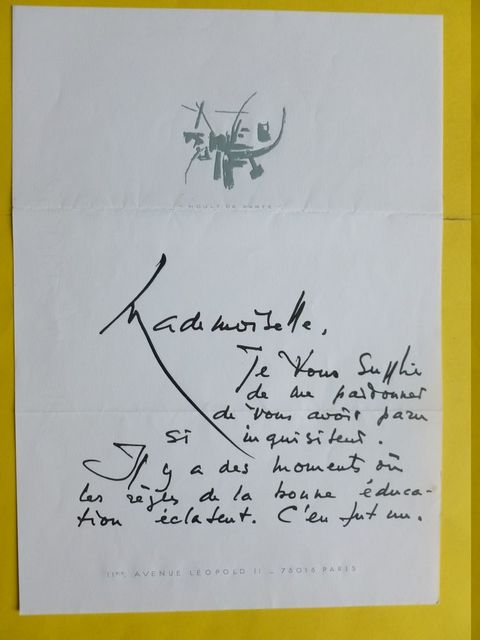 Mademoiselle,
Je Vous Supplie
de me pardonner
de vous avoir paru
si inquisiteur.
Il y a des moments où
les règles de la bonne éduca-
tion éclatent. C'en fut un.
AVENUE LEOPOLD II _ 75016 PARIS